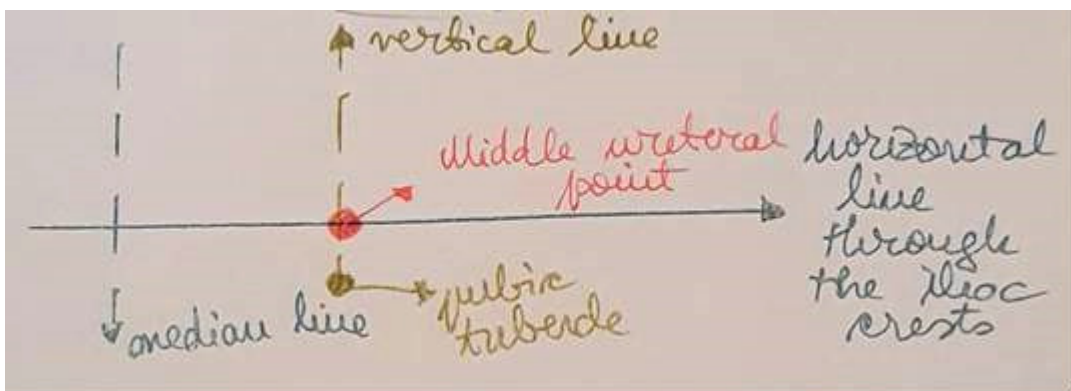 vertical line
Middle ureteral
point
horizontal
line
through
the ilioc
crests
median line
pubic
tubercle